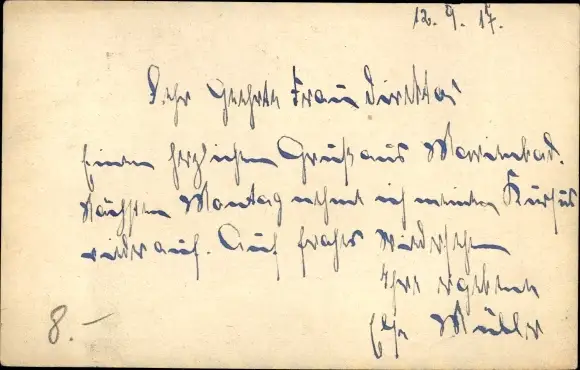 12. 9. 17.
Sehr Geehrte Frau Direktor
Einen herzlichen Gruß aus Marienbad.
Nächsten Montag nehme ich meinen Kursus
wieder auf. Auf frohes Wiedersehen
Ihre ergebene
Müller
8.—